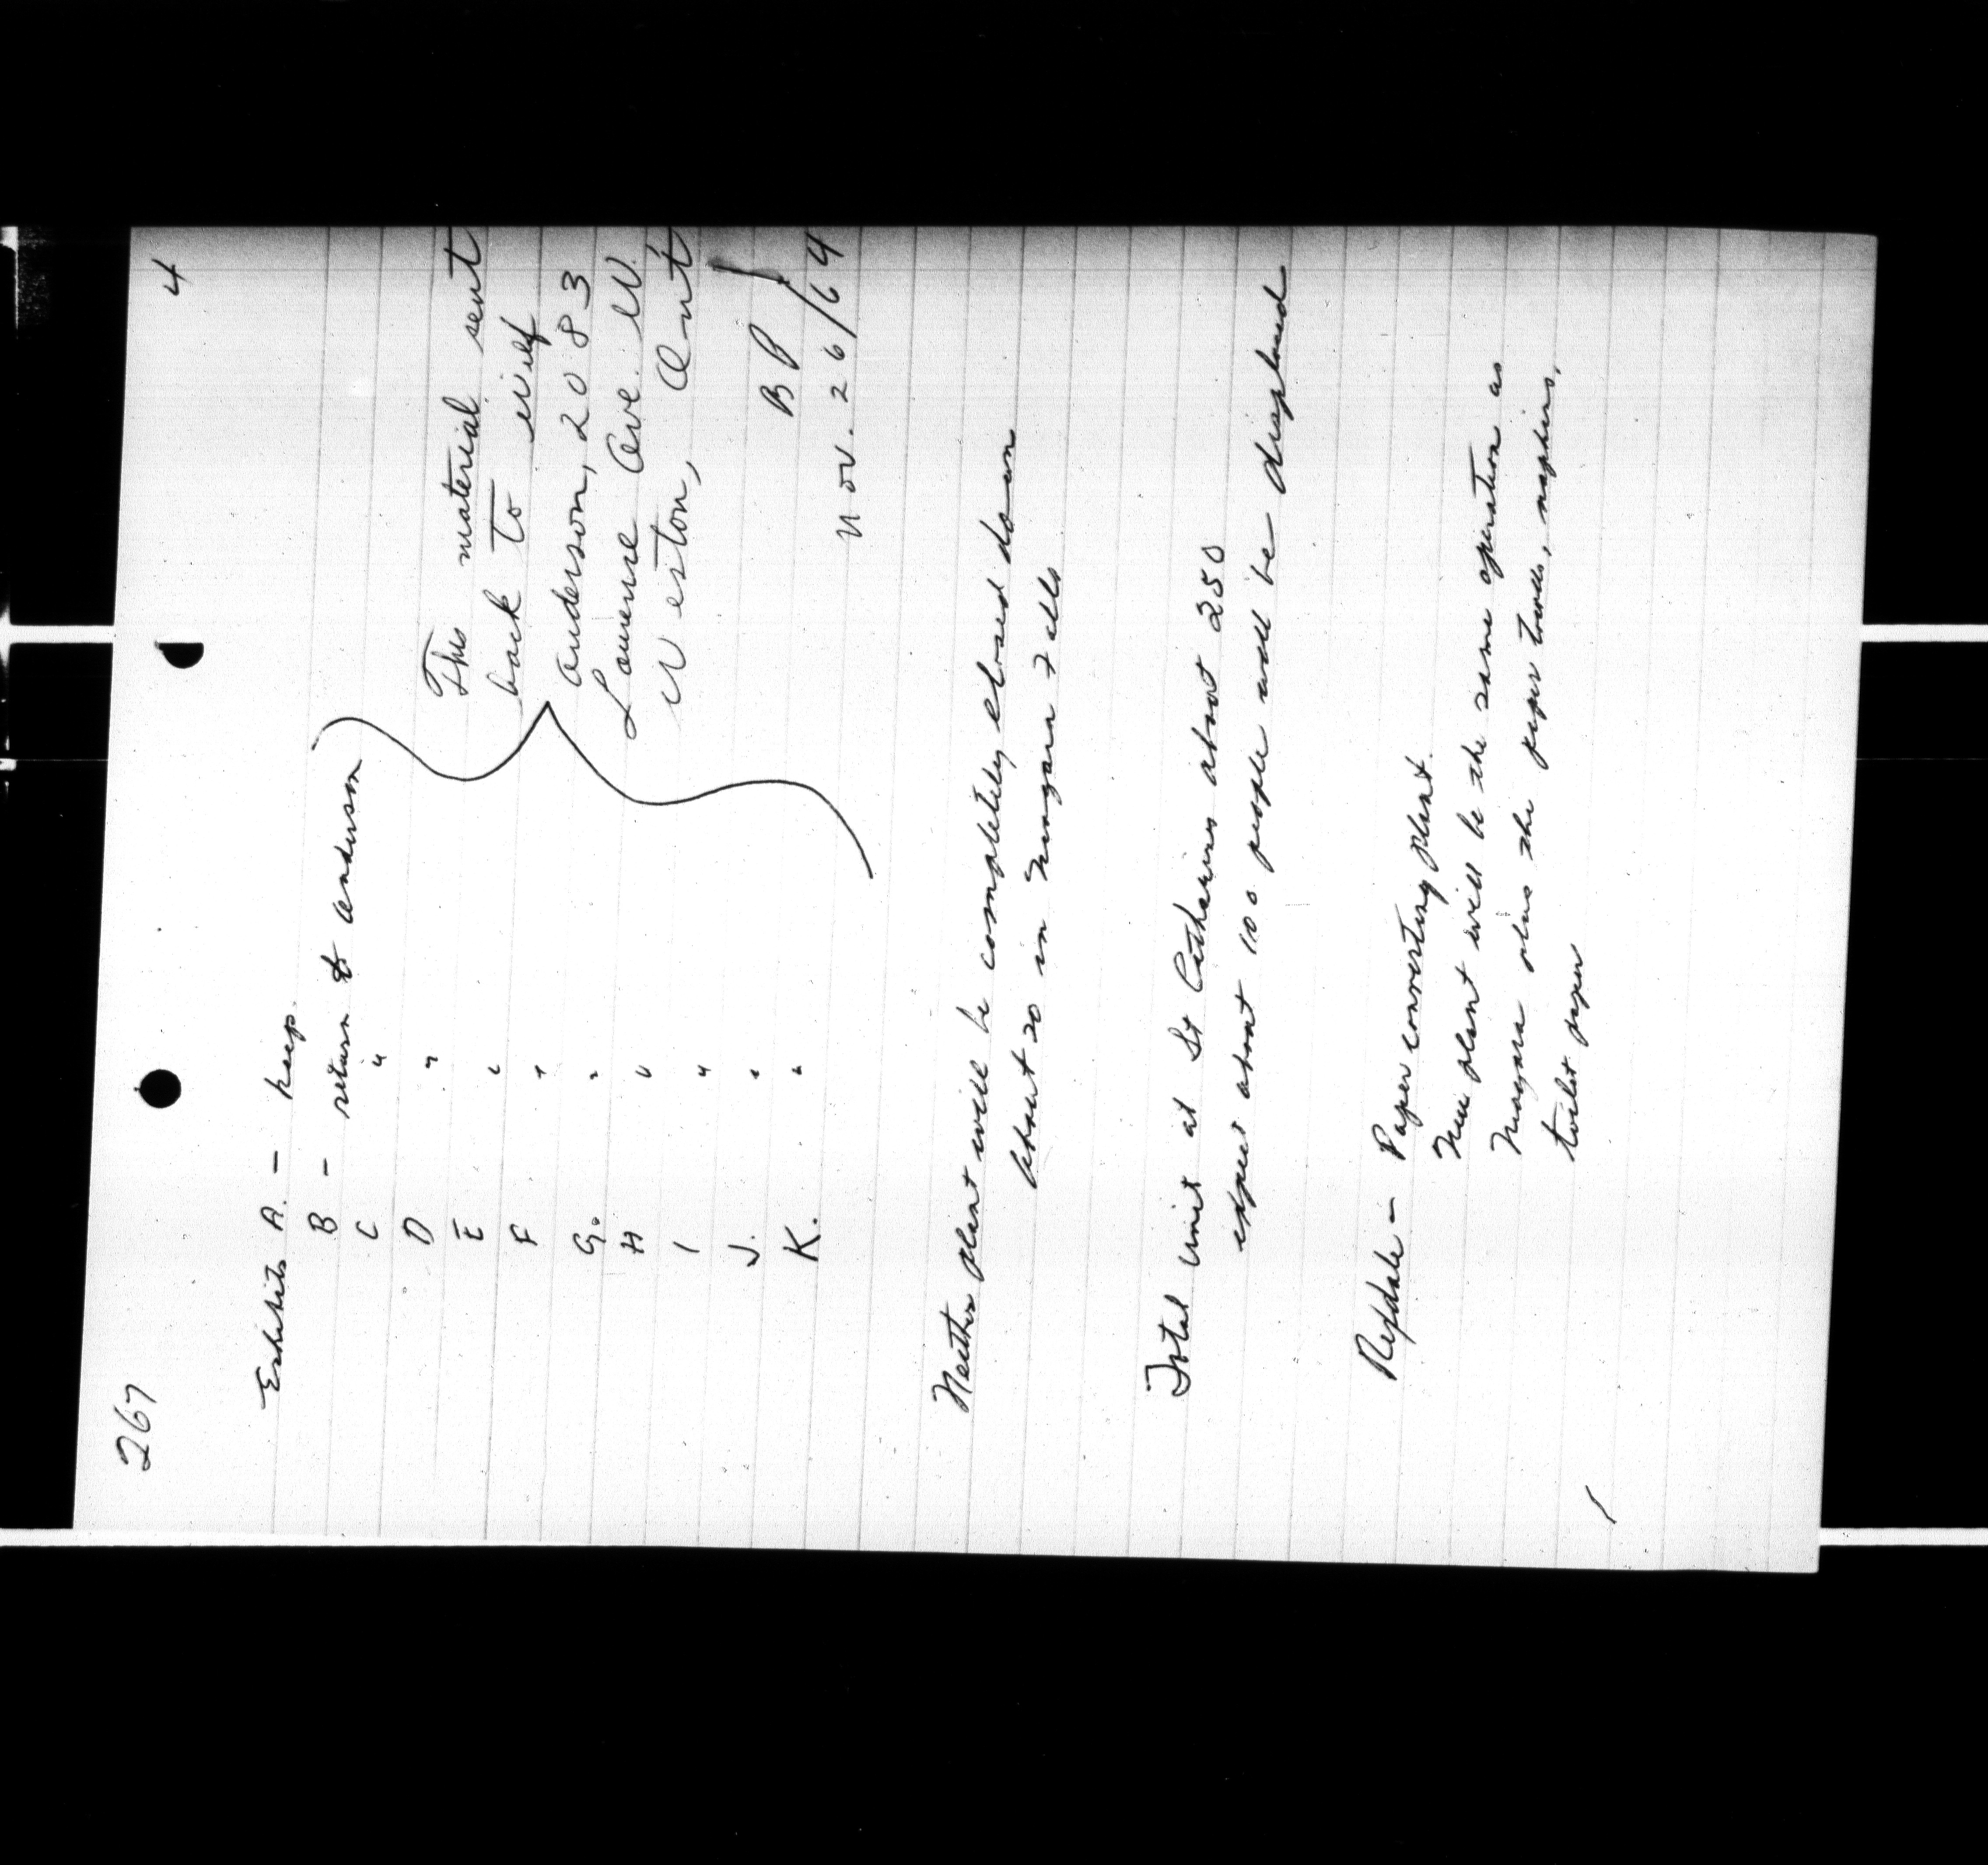 267
4
Exhibits A. - keep.
B - return to Anderson
C "
D "
E "
F "
G. "
H "
I "
J. "
K. "
This material sent
back to Wilf
Anderson, 2083
Lawrence Ave. W.
Weston, Ont
BP
Nov. 26/64
Neither plant will be completely closed down
about 20 in Niagara Falls
Total unit at St Catharines about 250
expect about 100 people will be displaced
Rexdale - Paper converting plant.
New plant will be the same operation as
Niagara plus the paper towels, napkins,
toilet paper